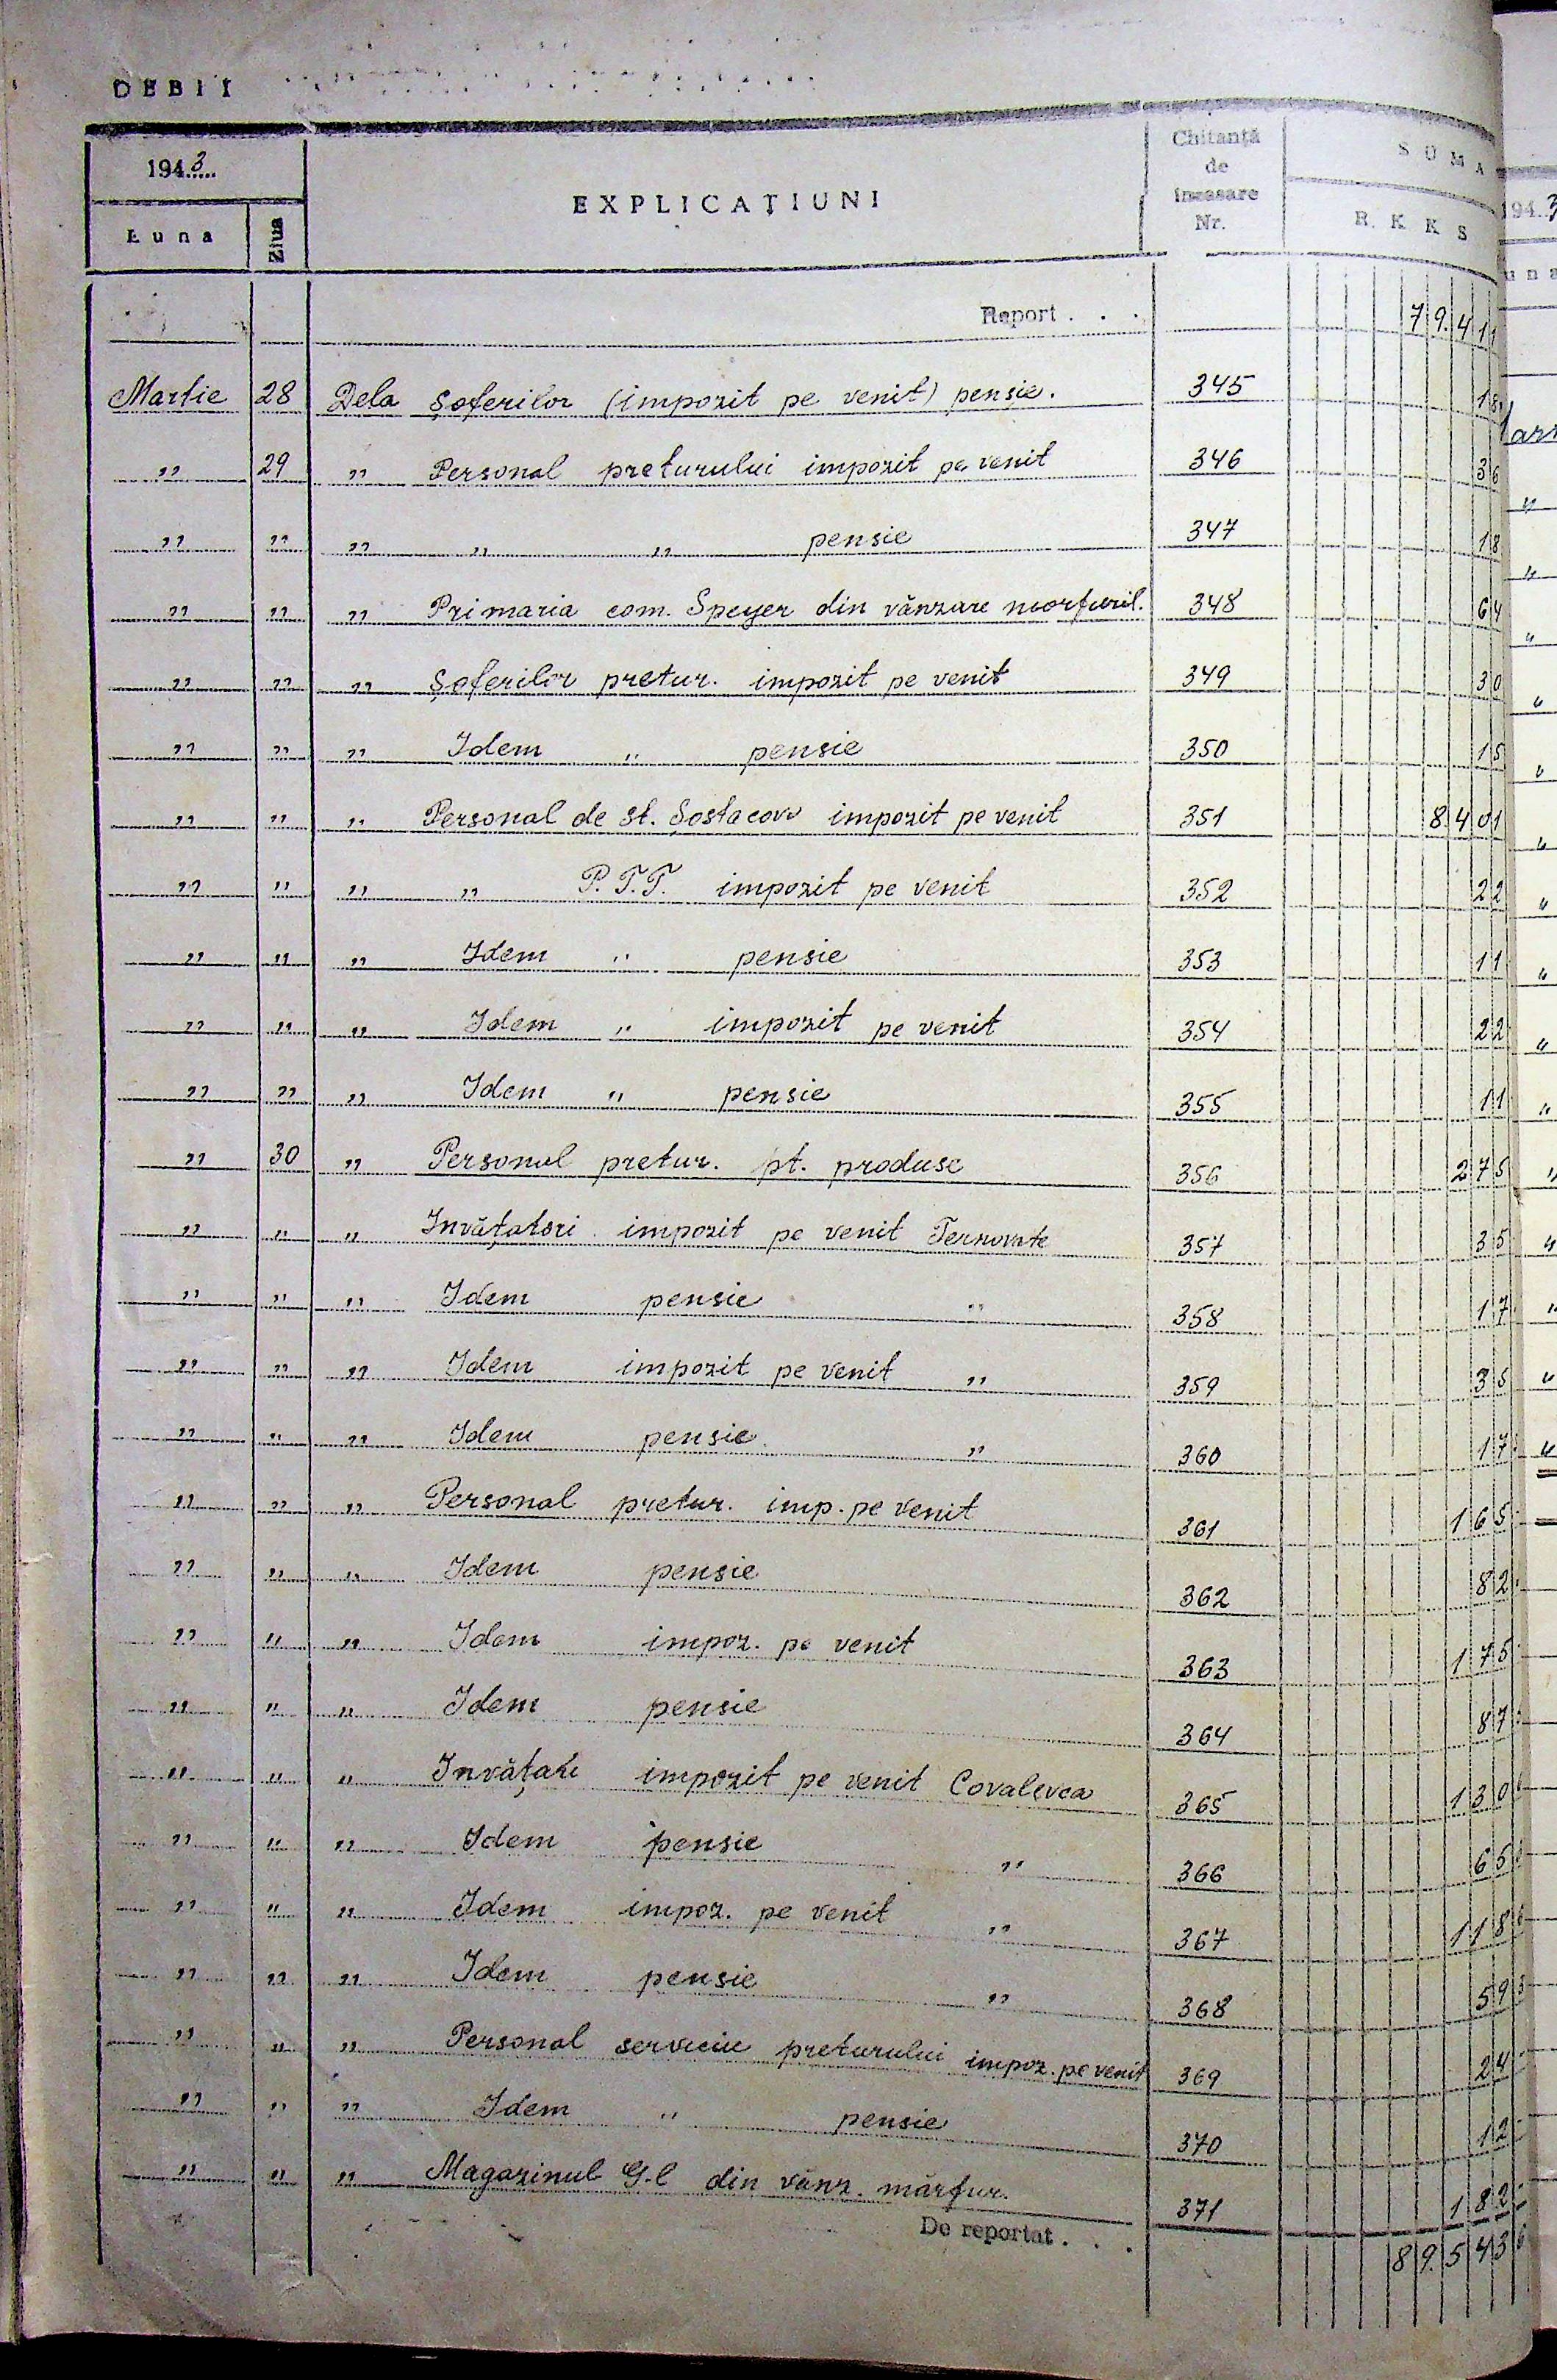 DEBIT
1943
Luna Ziua EXPLICAŢIUNI Chitanţă de încasare Nr. SUMA R. K. K. S
Report . . . 79.411
Martie 28 Dela şoferilor (impozit pe venit) pensie. 345 18
„ 29 „ Personal preturului impozit pe venit 346 36
„ „ „ „ „ pensie 347 18
„ „ „ Primaria com. Speyer din vănzare morfuril. 348 64
„ „ „ Şoferilor pretur. impozit pe venit 349 30
„ „ „ Idem „ pensie 350 15
„ „ „ Personal de st. Şostacovo impozit pe venit 351 8.401
„ „ „ „ P.T.T. impozit pe venit 352 22
„ „ „ Idem „ pensie 353 11
„ „ „ Idem „ impozit pe venit 354 22
„ „ „ Idem „ pensie 355 11
„ 30 „ Personal pretur. pt. produse 356 275
„ „ „ Invăţatori impozit pe venit Ternovate 357 35
„ „ „ Idem pensie „ 358 17
„ „ „ Idem impozit pe venit „ 359 35
„ „ „ Idem pensie „ 360 17
„ „ „ Personal pretur. imp. pe venit 361 165
„ „ „ Idem pensie 362 82
„ „ „ Idem impoz. pe venit 363 175
„ „ „ Idem pensie 364 87
„ „ „ impozit pe venit Covalevca 365 130
„ „ „ Idem pensie „ 366 65
„ „ „ Idem impoz. pe venit „ 367 118
„ „ „ Idem pensie „ 368 59
„ „ „ Personal serviciu preturului impoz. pe venit 369 24
„ „ „ Idem „ pensie 370 12
„ „ „ Magazinul G-l din vănz. mărfur. 371 182
De reportat . . . 89.543